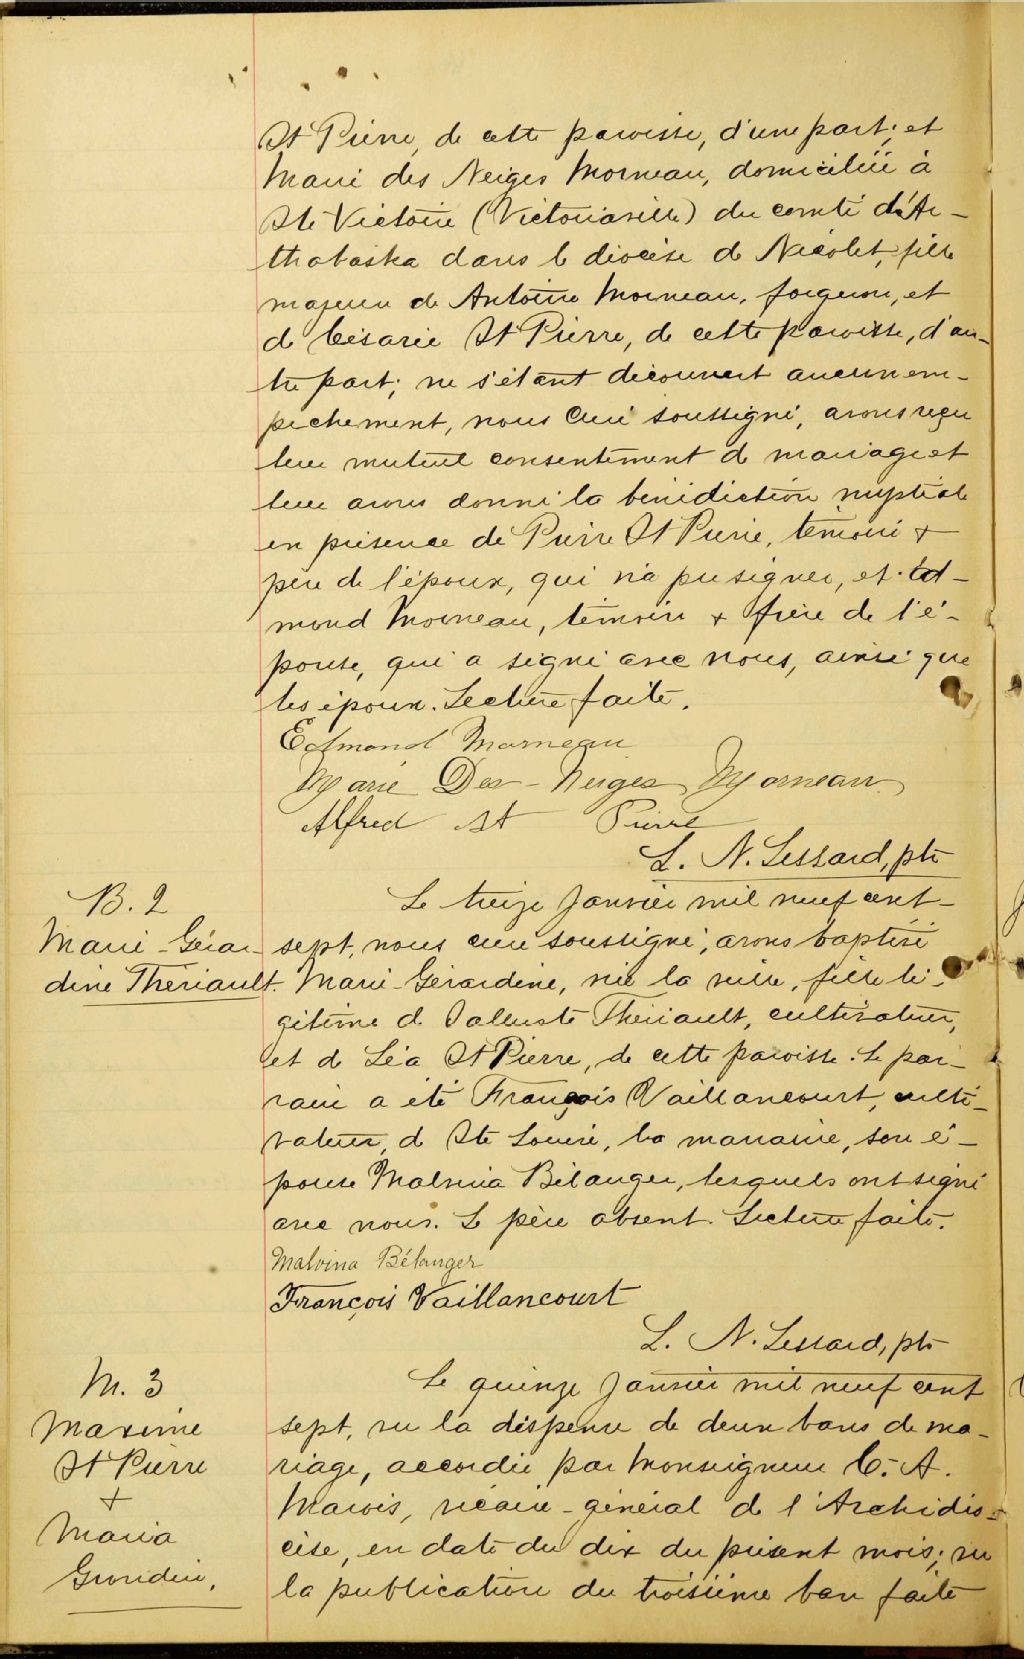 St Pierre, de cette paroisse, d'une part; et
Marie des Neiges Morneau, domiciliée à
Ste Victoire (Victoriaville) du comté d'Ar-
thabaska dans le diocèse de Nicolet, fille
majeure de Antoine Morneau, forgeron, et
de Césarie St Pierre, de cette paroisse, d'au-
tre part; ne s'étant découvert aucun em-
pêchement, nous Curé soussigné, avons reçu
leur mutuel consentement de mariage et
leur avons donné la bénédiction nuptiale
en présence de Pierre St Pierre, témoin +
père de l'époux, qui n'a pu signer, et Ed-
mond Morneau, témoin + frère de l'é-
pouse, qui a signé avec nous, ainsi que
les époux. Lecture faite.
Edmond Morneau
Marie Des-Neiges Morneau
Alfred St Pierre
L. N. Lessard, ptre
B. 2
Marie-Gérar-
dine Thériault.
Le treize Janvier mil neuf cent-
sept, nous curé soussigné, avons baptisé
Marie-Gérardine, née la veille, fille lé-
gitime de Salluste Thériault, cultivateur,
et de Léa St Pierre, de cette paroisse. Le par-
rain a été François Vaillancourt, culti-
vateur, de Ste Louise, la marraine, son é-
pouse Malvina Bélanger, lesquels ont signé
avec nous. Le père absent. Lecture faite.
Malvina Bélanger
François Vaillancourt
L. N. Lessard, ptre
M. 3
Maxime
St Pierre
+
Maria
Grondin,
Le quinze Janvier mil neuf cent
sept, vu la dispense de deux bans de ma-
riage, accordée par Monseigneur C.-A.
Marois, vicaire-général de l'Archidio-
cèse, en date du dix du présent mois; vu
la publication du troisième ban faite